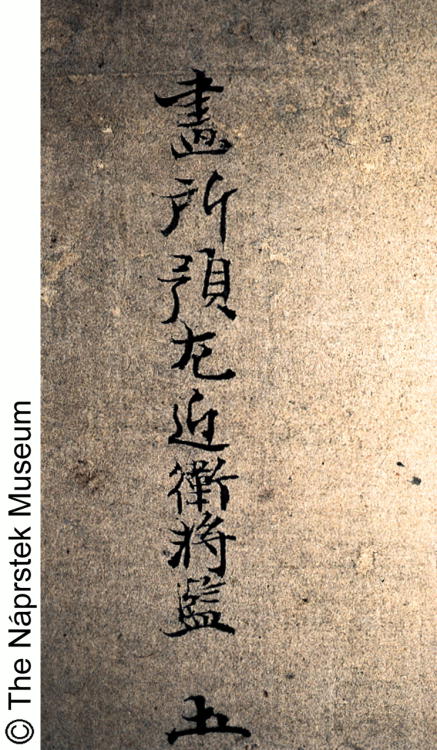 畫所預左近衛将監 土
© The Náprstek Museum